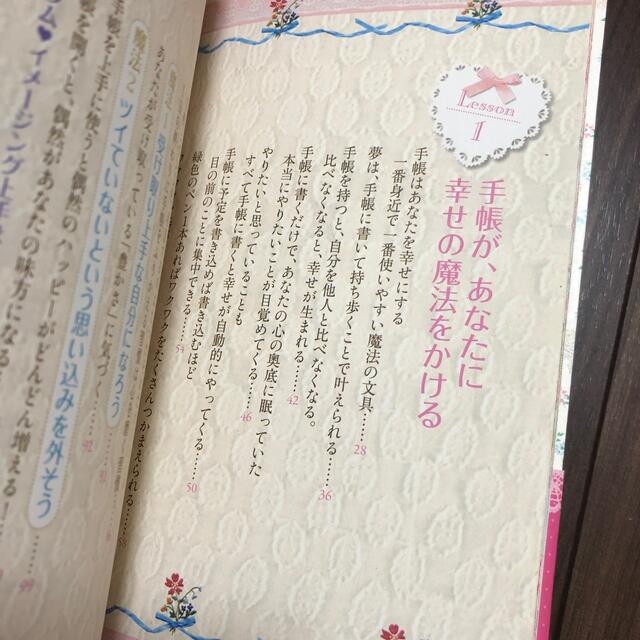 Lesson
1
手帳が、あなたに
幸せの魔法をかける
手帳はあなたを幸せにする
一番身近で一番使いやすい魔法の文具……28
夢は、手帳に書いて持ち歩くことで叶えられる……36
手帳を持つと、自分を他人と比べなくなる。
比べなくなると、幸せが生まれる……42
手帳に書くだけで、あなたの心の奥底に眠っていた
本当にやりたいことが目覚めてくる……46
やりたいと思っていることも
すべて手帳に書くと幸せが自動的にやってくる……50
手帳に予定を書き込めば書き込むほど
目の前のことに集中できる……54
緑色のペン1本あればワクワクをたくさんつかまえられる……58
受け取り上手な自分になろう
あなたが受け取っている「豊かさ」に気づく……92
ツイていないという思い込みを外そう
手帳を上手に使うと偶然のハッピーがどんどん増える!……99
を開くと、偶然があなたの味方になる
イメージング